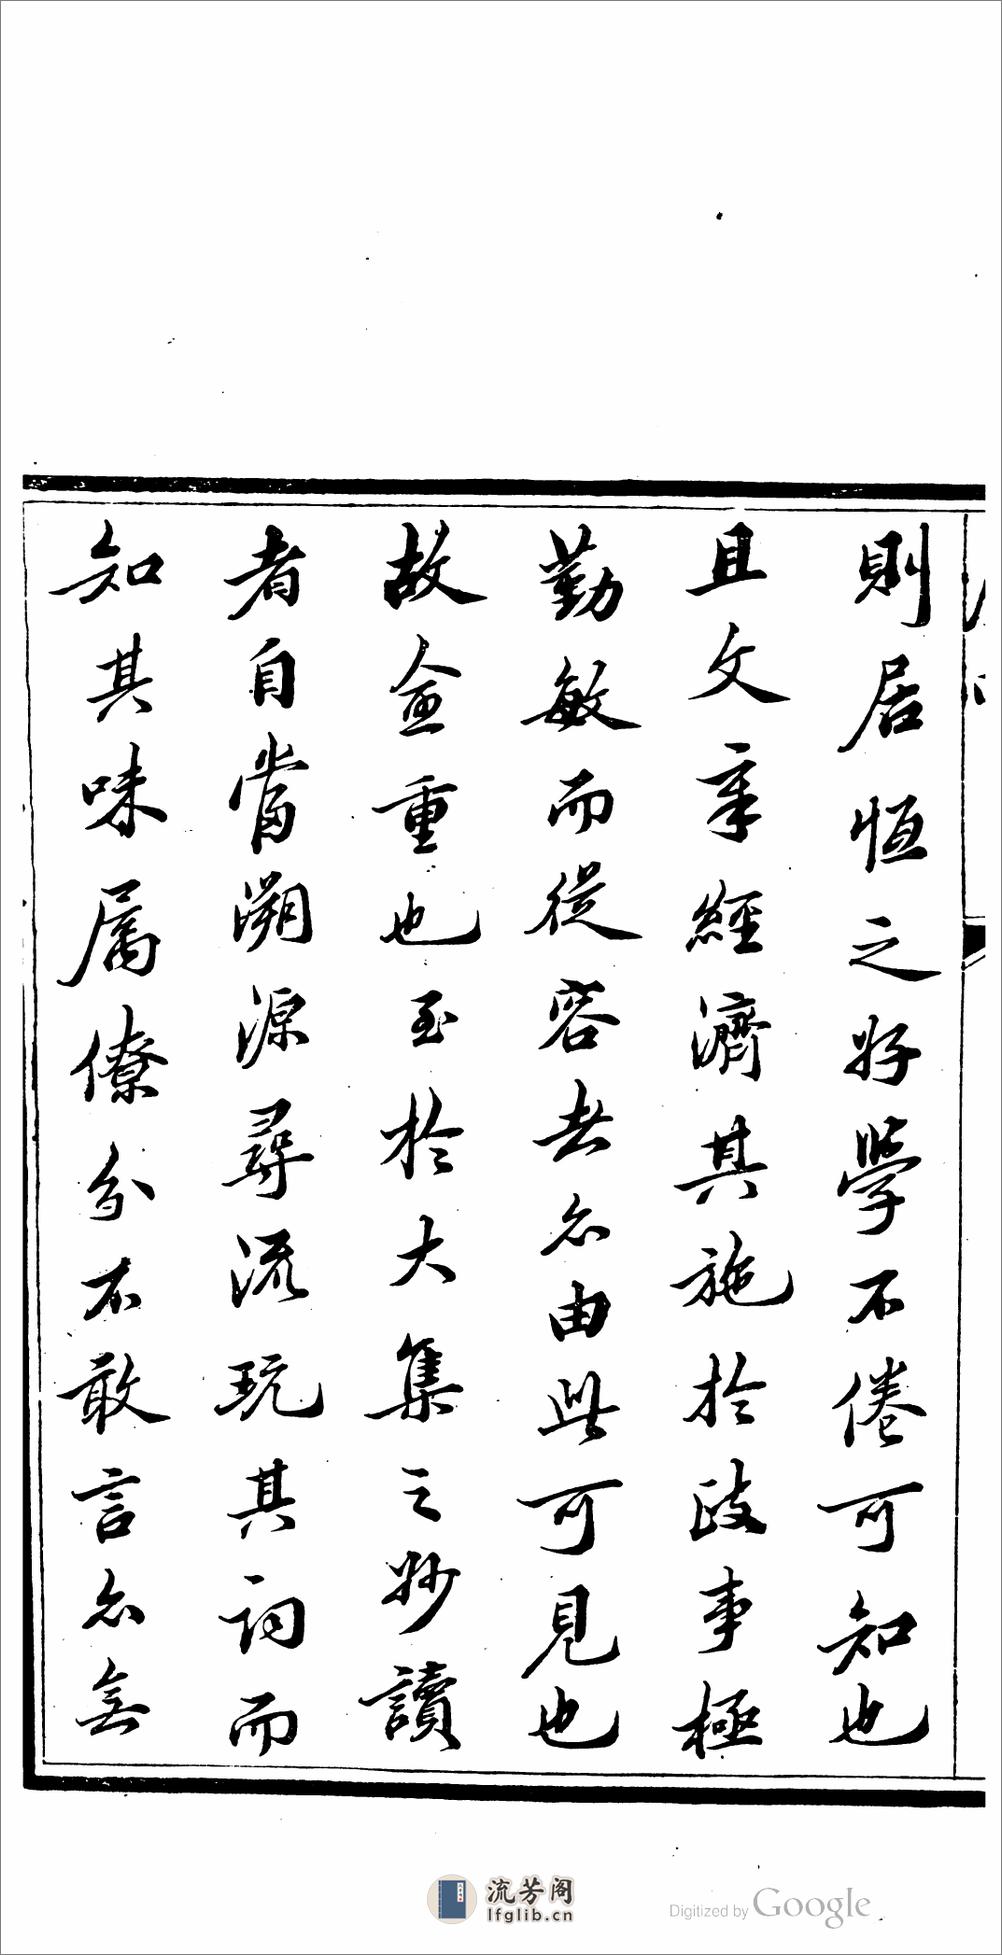 則居恒之好學不倦可知也
且文章經濟其施於政事極
勤敏而從容者亦由此可見也
故並重也至於大集之妙讀
者自當溯源尋流玩其詞而
知其味屬僚分不敢言亦無
流芳阁
lfglib.cn
Digitized by Google